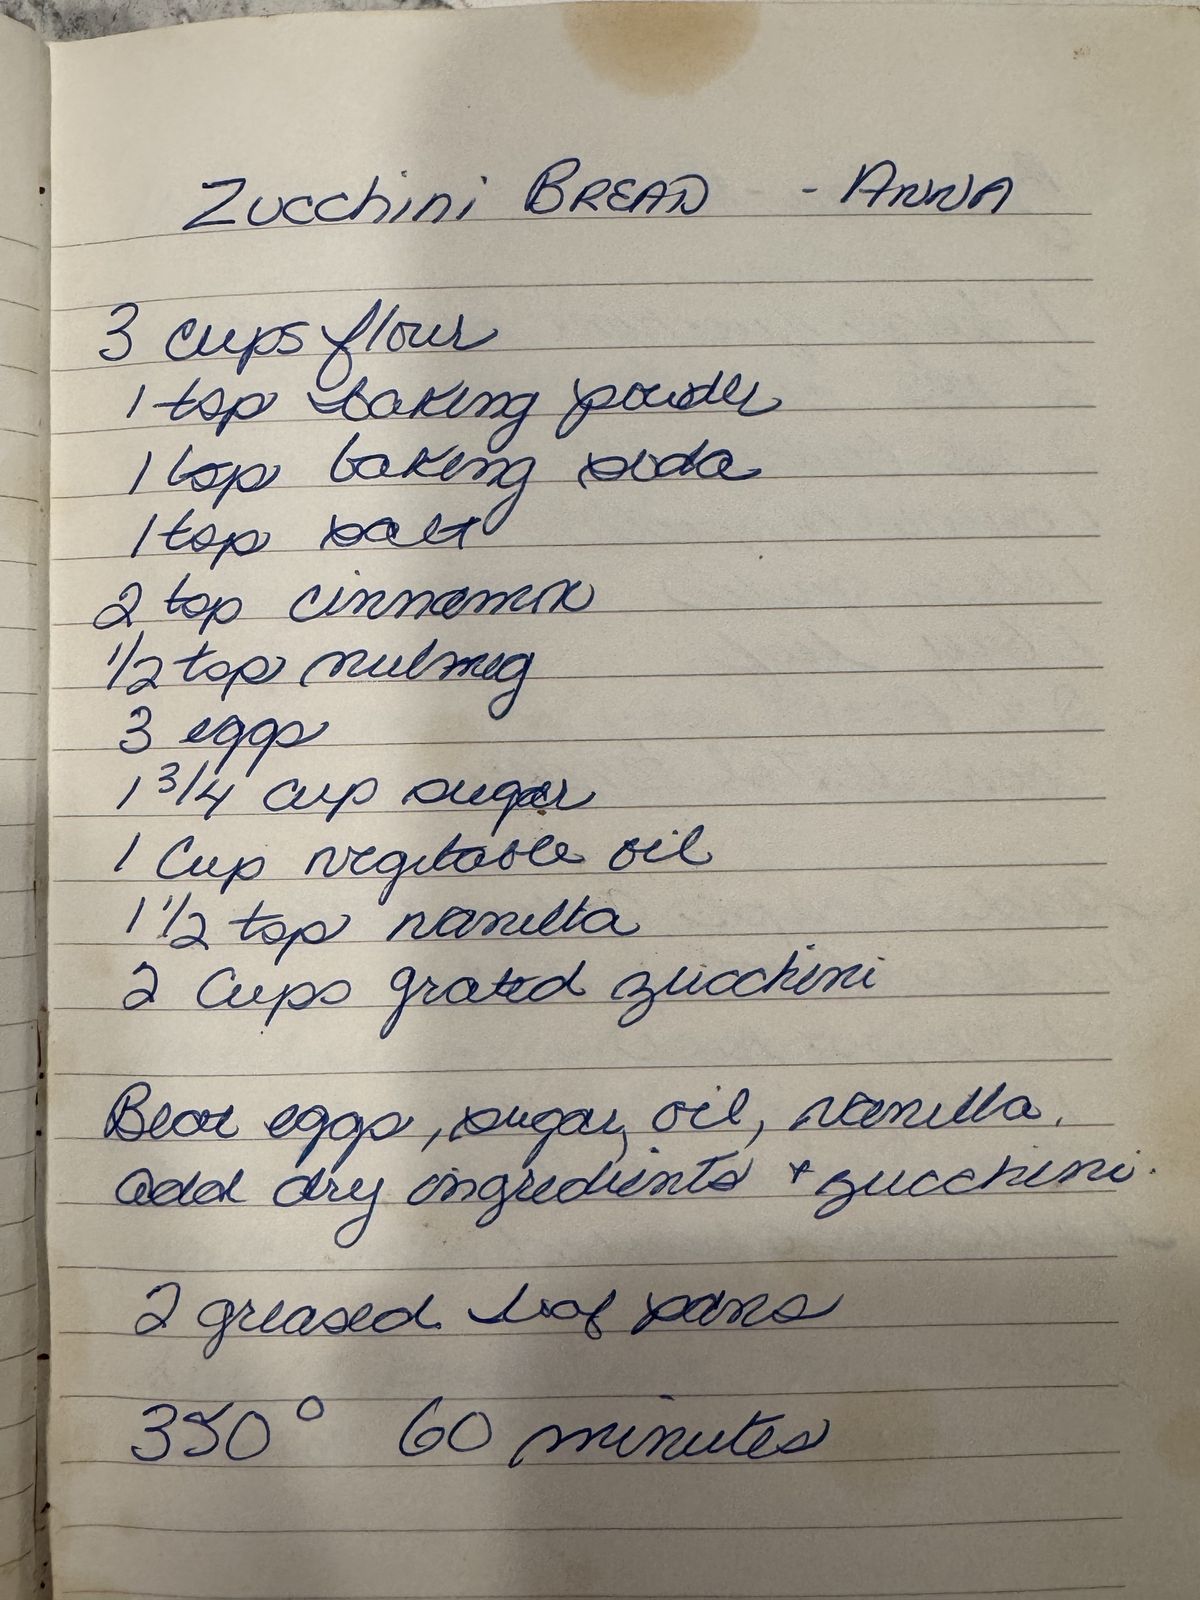 Zucchini BREAD - ANNA
3 cups flour
1 tsp baking powder
1 tsp baking soda
1 tsp salt
2 tsp cinnamon
1/2 tsp nutmeg
3 eggs
1 3/4 cup sugar
1 Cup vegetable oil
1 1/2 tsp vanilla
2 Cups grated zucchini
Beat eggs, sugar, oil, vanilla.
add dry ingredients + zucchini.
2 greased loaf pans
350° 60 minutes